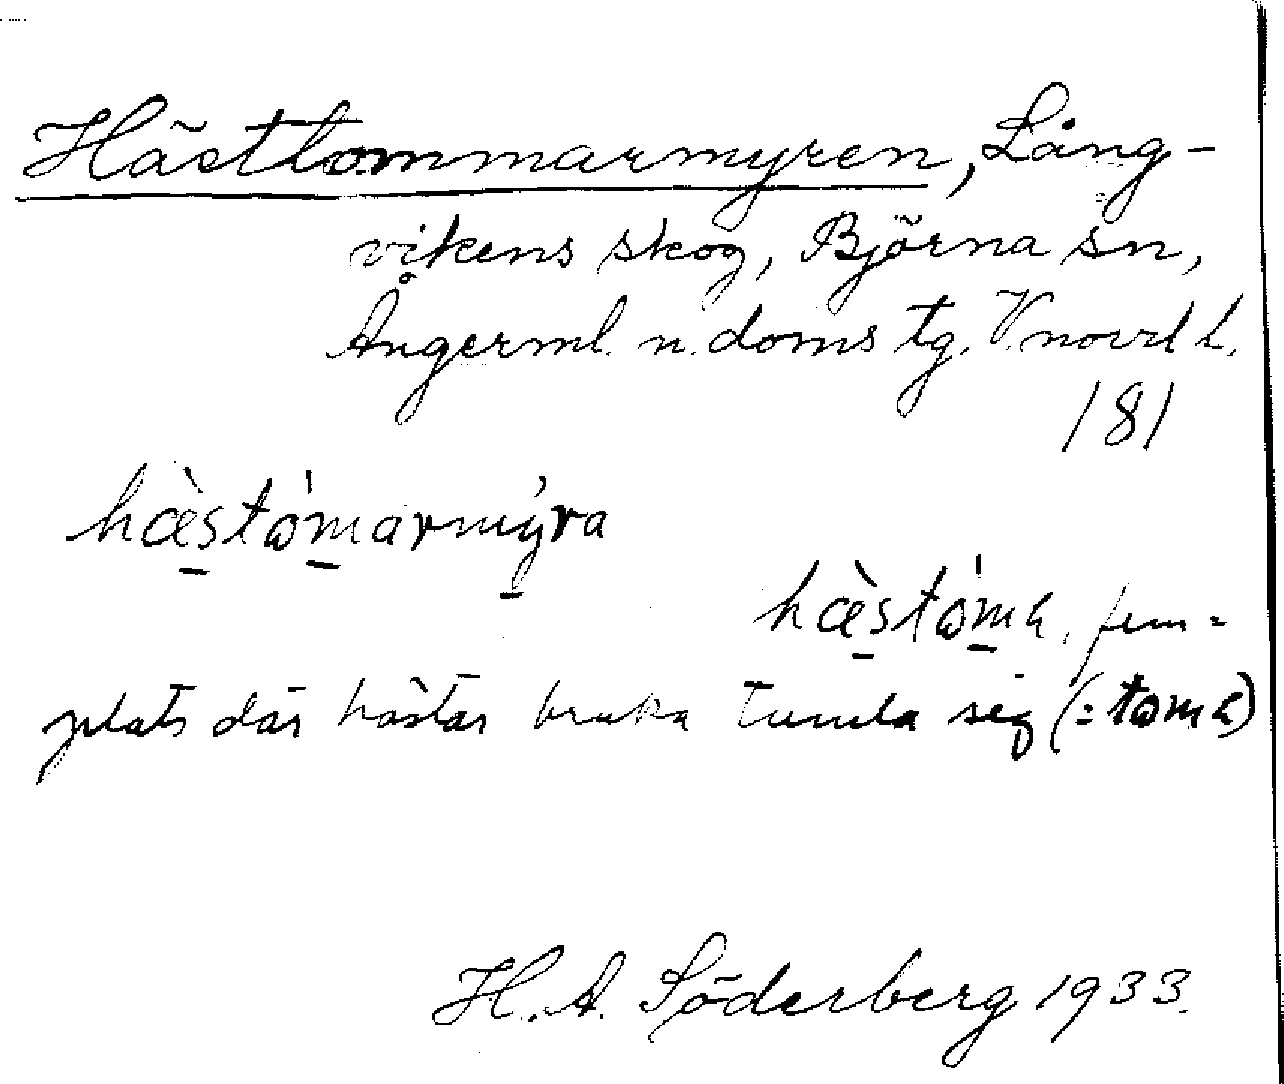 Hästtommarmyren, Lång-
vikens skog, Björna sn,
Ångerml. n. doms tg. V.norrl l.
181
hæ̀stòmarmýra
hæ̀stòma, fem=
plats där hästar bruka tumla sig (=toma)
H. A. Söderberg 1933.